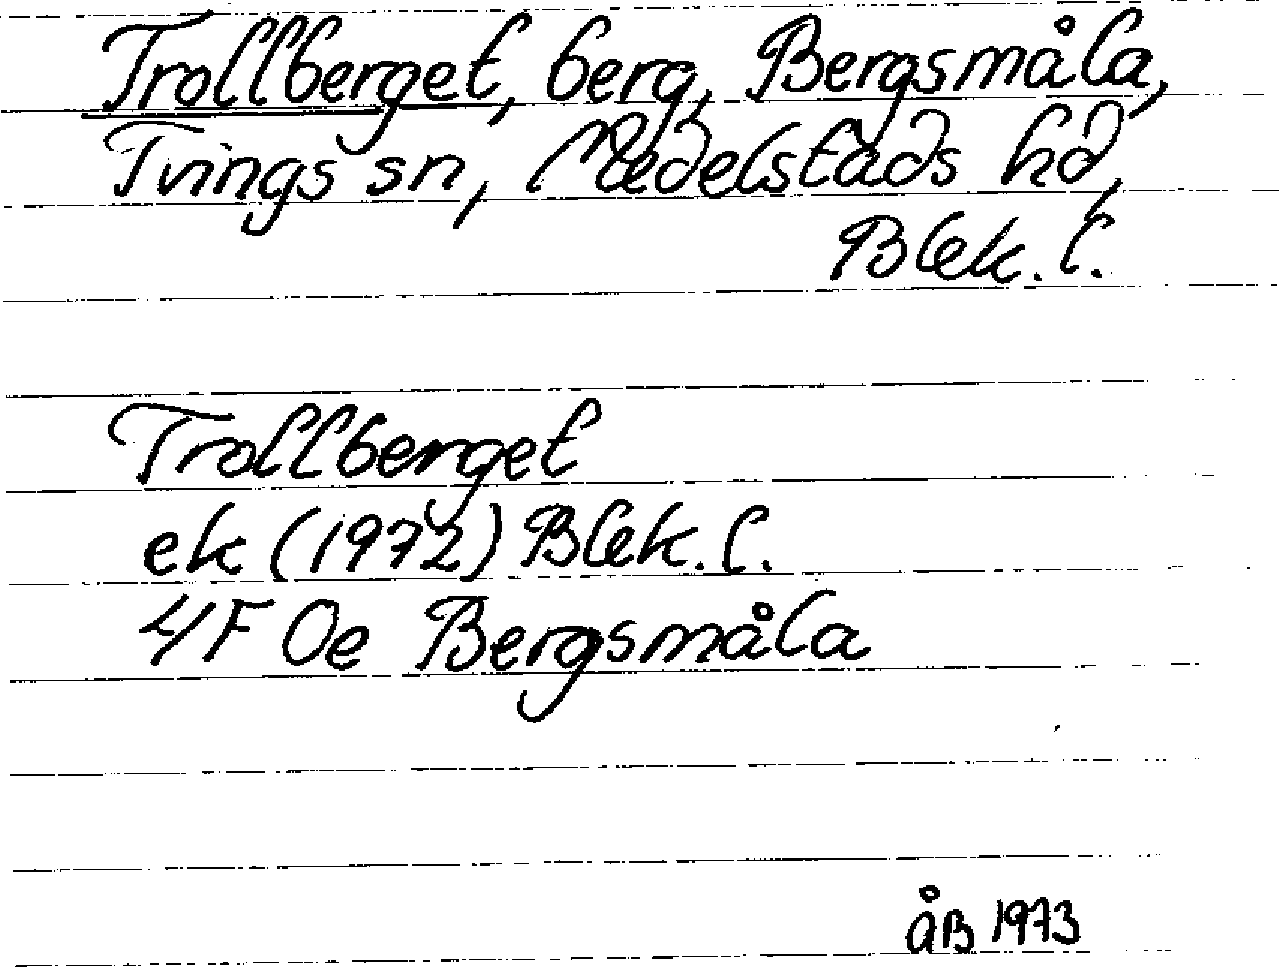 Trollberget, berg, Bergsmåla,
Tvings sn, Medelstads hd,
Blek. l.
Trollberget
ek (1972) Blek. l.
4F Oe Bergsmåla
ÅB 1973